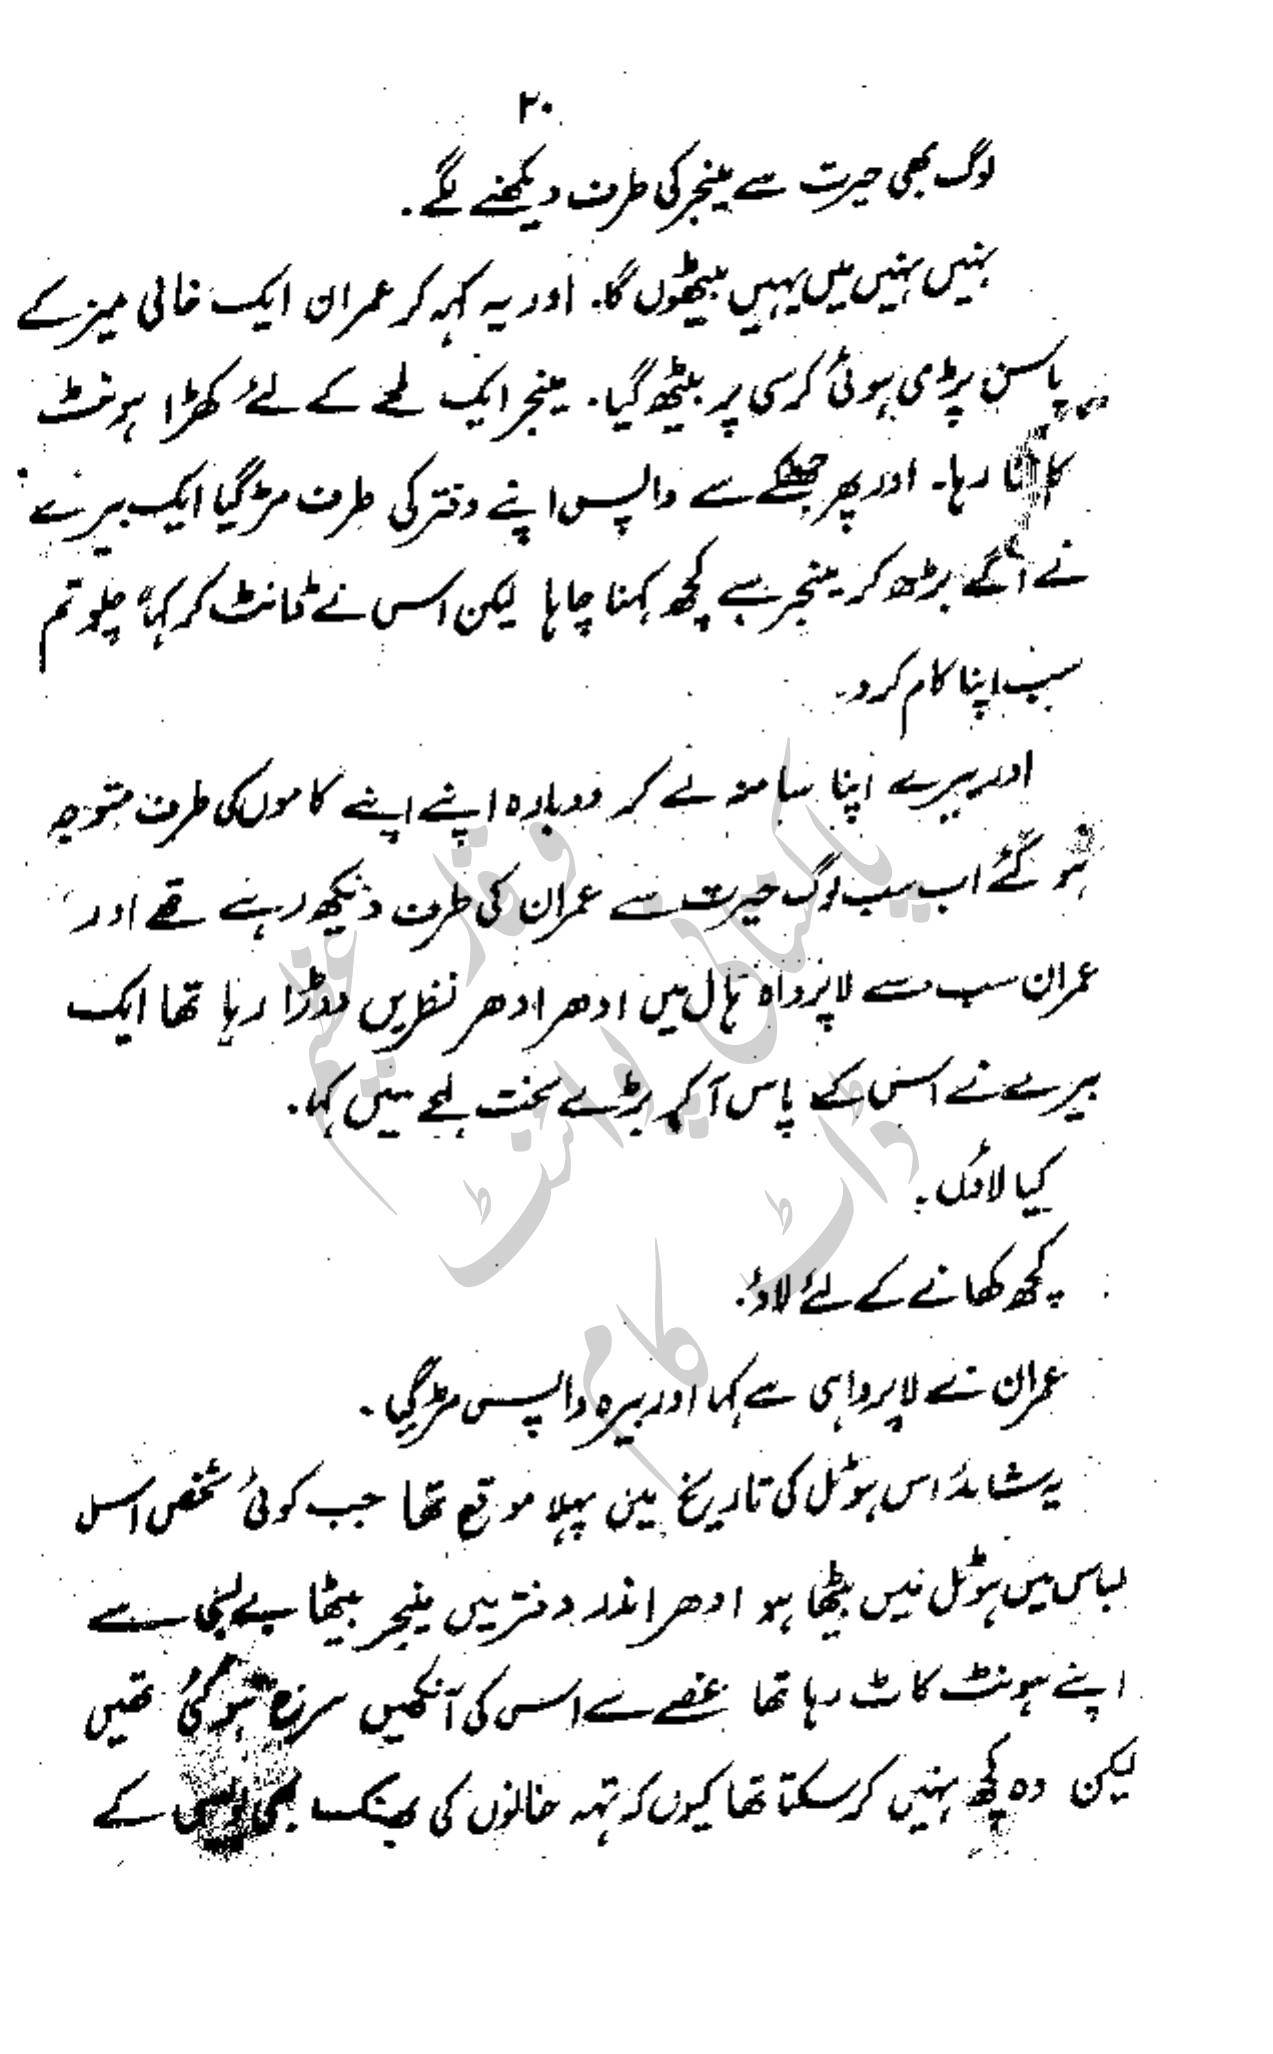 ۲۰
لوگ بھی حیرت سے مینجر کی طرف دیکھنے لگے۔
نہیں نہیں میں یہیں بیٹھوں گا۔ اور یہ کہہ کر عمران ایک خالی میز کے
پاس پڑی ہوئی کرسی پر بیٹھ گیا۔ مینجر ایک لمحے کے لئے کھڑا ہونٹ
کاٹتا رہا۔ اور پھر جھٹکے سے واپس اپنے دفتر کی طرف مڑ گیا ایک بیرے
نے آگے بڑھ کر مینجر سے کچھ کہنا چاہا لیکن اس نے ڈانٹ کر کہا" چلو تم
سب اپنا کام کرو۔
اور بیرے اپنا سا منہ لے کر دوبارہ اپنے اپنے کاموں کی طرف متوجہ
ہو گئے اب سب لوگ حیرت سے عمران کی طرف دیکھ رہے تھے اور
عمران سب سے لاپرواہ ہال میں ادھر ادھر نظریں دوڑا رہا تھا ایک
بیرے نے اس کے پاس آ کر بڑے سخت لہجے میں کہا۔
کیا لاؤں۔
کچھ کھانے کے لئے لاؤ۔
عمران نے لاپرواہی سے کہا اور بیرہ واپس مڑ گیا۔
یہ شائد اس ہوٹل کی تاریخ میں پہلا موقع تھا جب کوئی شخص اس
لباس میں ہوٹل میں بیٹھا ہو ادھر اندر دفتر میں مینجر بیٹھا بے بسی سے
اپنے ہونٹ کاٹ رہا تھا غصے سے اس کی آنکھیں سرخ ہو گئی تھیں
لیکن وہ کچھ نہیں کر سکتا تھا کیوں کہ تہہ خانوں کی بھنک بھی پولیس کے
وقار عظیم
پاکستانی پوائنٹ
ڈاٹ کام